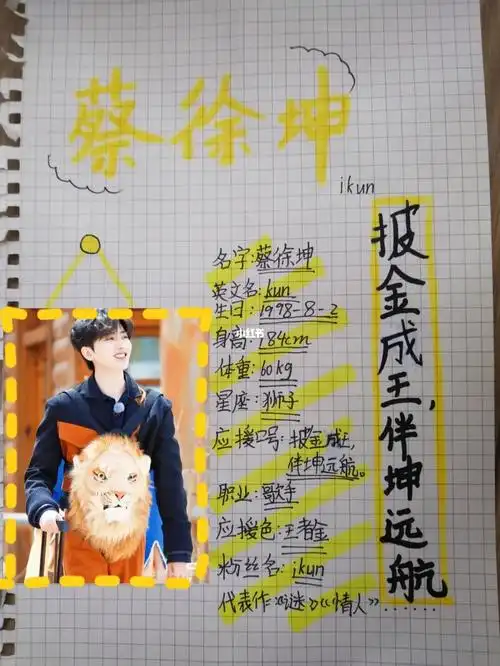 蔡徐坤
ikun
披金成王,伴坤远航
名字:蔡徐坤
英文名:kun
生日:1998-8-2
小红书
身高:184cm
体重:60kg
星座:狮子
应援口号:披金成王,
伴坤远航。
职业:歌手
应援色:王者金
粉丝名:ikun
代表作:《谜》《情人》......